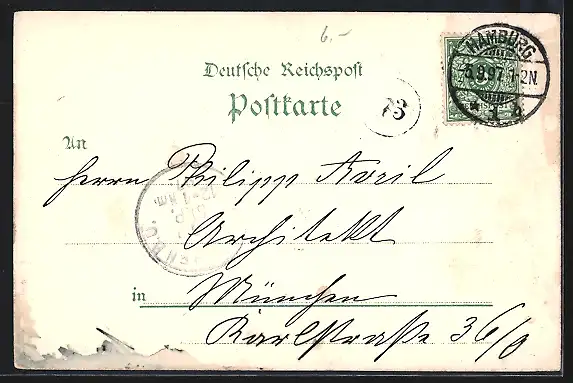 6.–
Deutsche Reichspost
Postkarte
HAMBURG
5.9.97. 1-2N.
* 1 *
An
Herrn Philipp Avril
Architekt
in München
Karlstraße 36/0